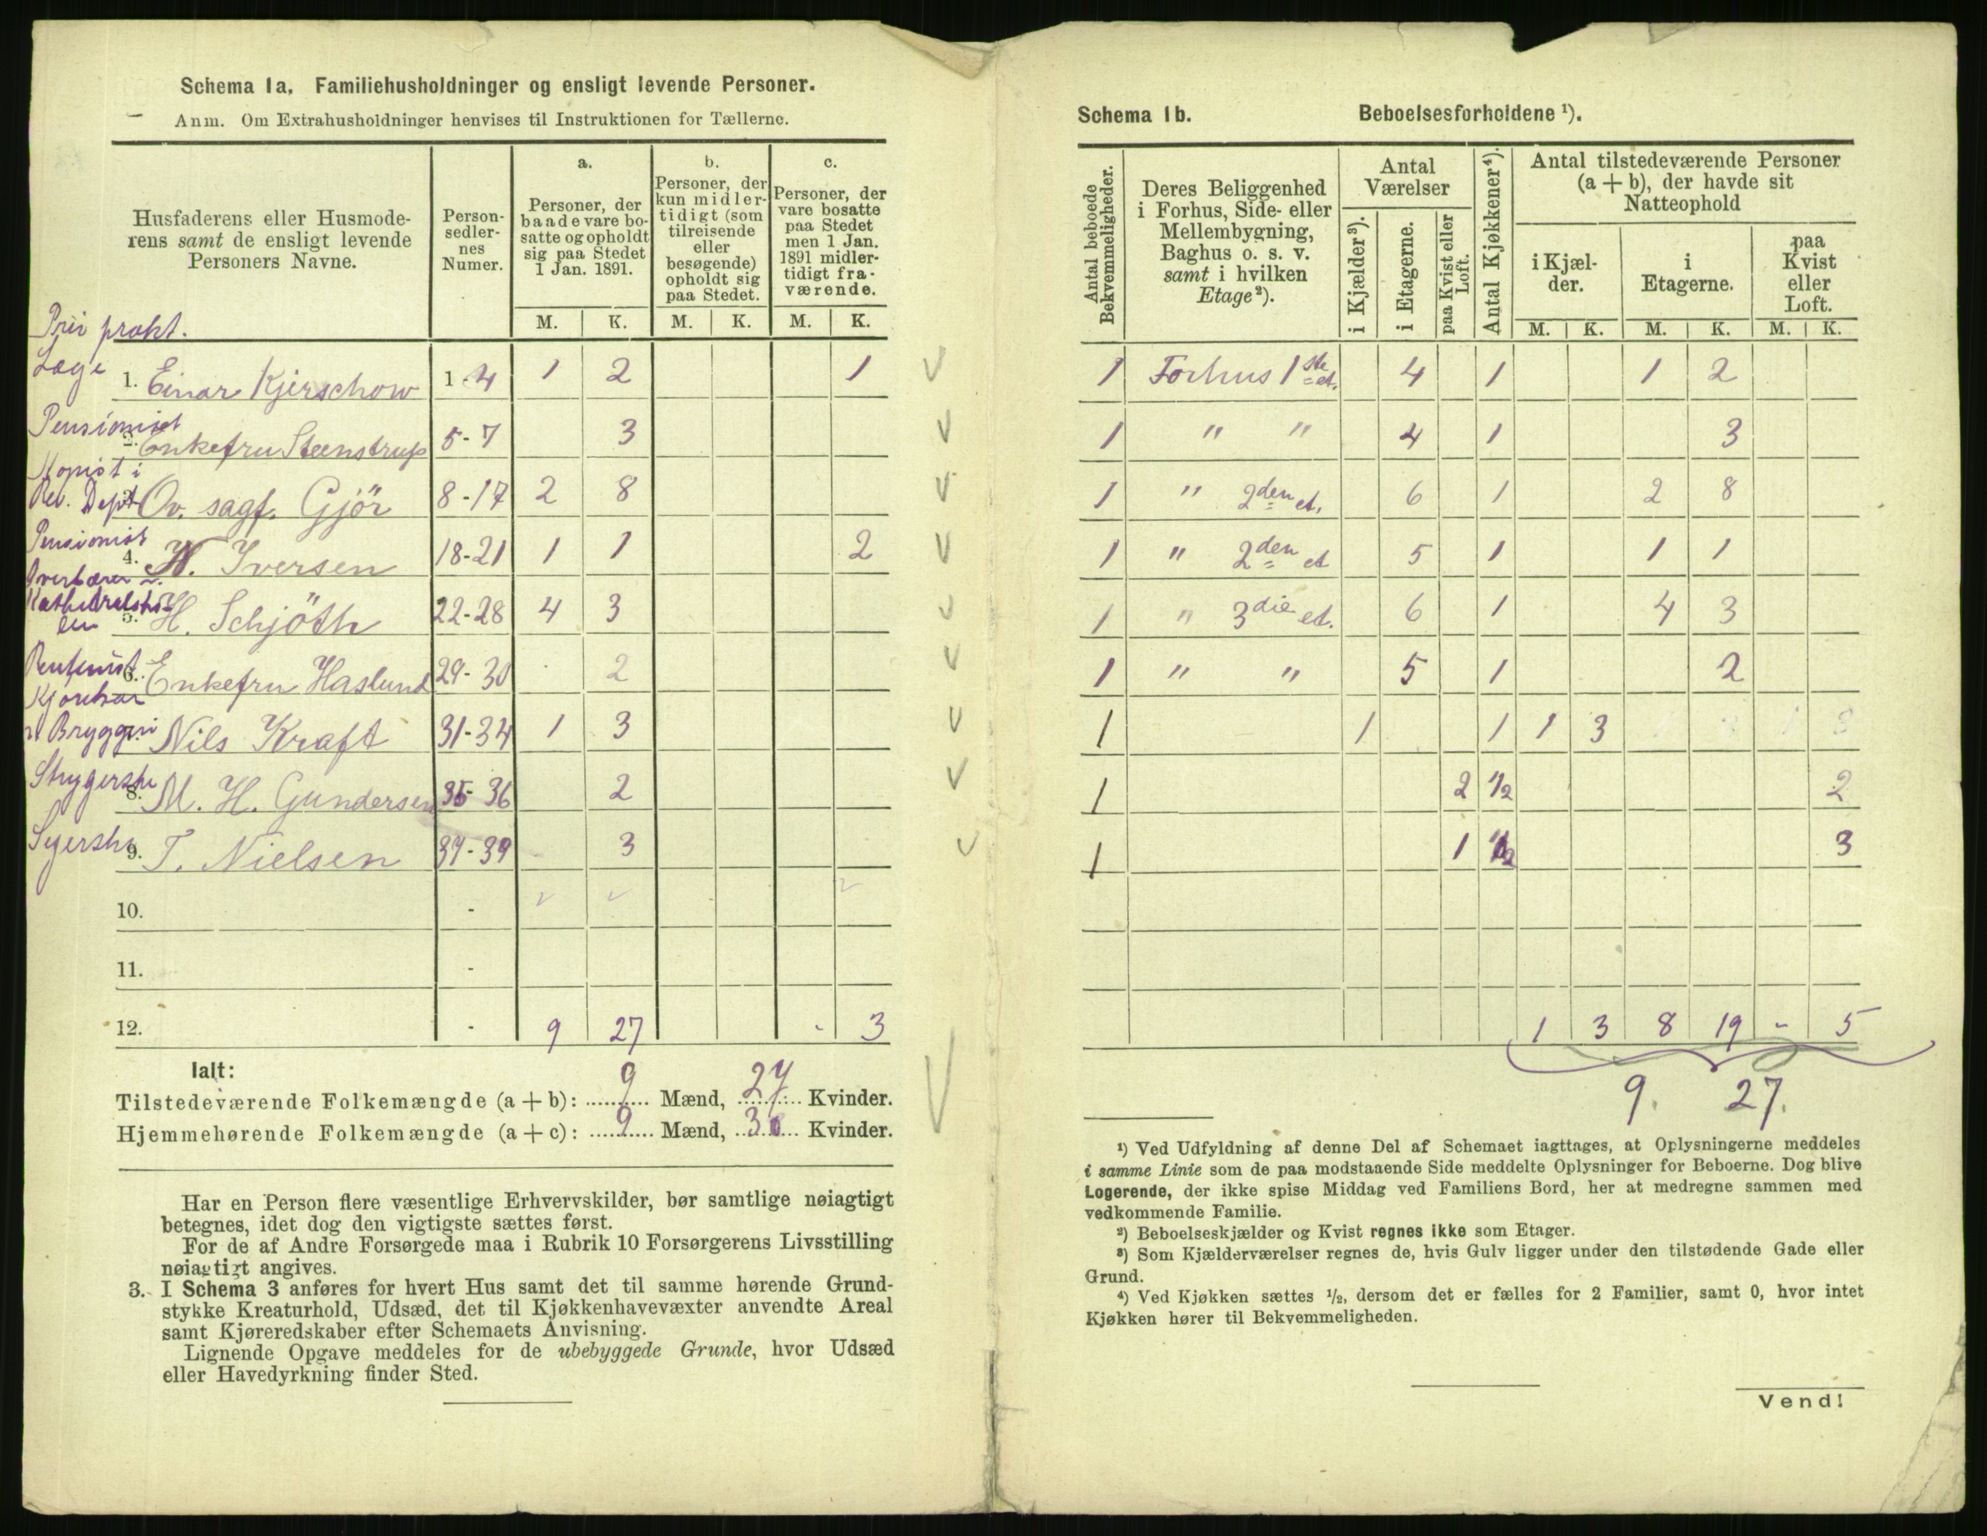 Schema 1a. Familiehusholdninger og ensligt levende Personer.
Anm. Om Extrahusholdninger henvises til Instruktionen for Tællerne.
Husfaderens eller Husmode-
rens samt de ensligt levende
Personers Navne.
Person-
sedler-
nes
Numer.
a.
Personer, der
baade vare bo-
satte og opholdt
sig paa Stedet
1 Jan. 1891.
b.
Personer, der
kun midler-
tidigt (som
tilreisende
eller
besøgende)
opholdt sig
paa Stedet.
c.
Personer, der
vare bosatte
paa Stedet
men 1 Jan.
1891 midler-
tidigt fra-
værende.
M. K. M. K. M. K.
Pri prakt.
Læge 1. Einar Kjerschow 1-4 1 2 1
Pensionist
2. Enkefru Steenstrup 5-7 3
Kopist i
Rev. Dept 3. Ov. sagf. Gjör 8-17 2 8
Pensionist
4. H. Iversen 18-21 1 1 2
Overlærer v.
Kathedralsko-
len 5. H. Schjöth 22-28 4 3
Rentenist
6. Enkefru Haslund 29-30 2
Kjørekar
v Bryggeri 7. Nils Kraft 31-34 1 3
Strygerske
8. M. H. Gundersen 35-36 2
Syerske 9. T. Nielsen 37-39 3
10. -
11. -
12. - 9 27 - 3
Ialt:
Tilstedeværende Folkemængde (a + b): 9 Mænd, 27 Kvinder.
Hjemmehørende Folkemængde (a + c): 9 Mænd, 30 Kvinder.
Har en Person flere væsentlige Erhvervskilder, bør samtlige nøiagtigt
betegnes, idet dog den vigtigste sættes først.
For de af Andre Forsørgede maa i Rubrik 10 Forsørgerens Livsstilling
nøiagtigt angives.
3. I Schema 3 anføres for hvert Hus samt det til samme hørende Grund-
stykke Kreaturhold, Udsæd, det til Kjøkkenhavevæxter anvendte Areal
samt Kjøreredskaber efter Schemaets Anvisning.
Lignende Opgave meddeles for de ubebyggede Grunde, hvor Udsæd
eller Havedyrkning finder Sted.
Schema 1b. Beboelsesforholdene ¹).
Antal beboede
Bekvemmeligheder.
Deres Beliggenhed
i Forhus, Side- eller
Mellembygning,
Baghus o. s. v.
samt i hvilken
Etage²).
Antal
Værelser
i Kjælder³).
i Etagerne.
paa Kvist eller
Loft.
Antal Kjøkkener⁴).
Antal tilstedeværende Personer
(a + b), der havde sit
Natteophold
i Kjæl-
der.
i
Etagerne.
paa
Kvist
eller
Loft.
M. K. M. K. M. K.
1 Forhus 1ste et. 4 1 1 2
1 " " 4 1 3
1 " 2den et. 6 1 2 8
1 " 2den et 5 1 1 1
1 " 3die et. 6 1 4 3
1 " " 5 1 2
1 1 1 1 3
1 2 1/2 2
1 1 1/2 3
1 3 8 19 - 5
9. 27.
¹) Ved Udfyldning af denne Del af Schemaet iagttages, at Oplysningerne meddeles
i samme Linie som de paa modstaaende Side meddelte Oplysninger for Beboerne. Dog blive
Logerende, der ikke spise Middag ved Familiens Bord, her at medregne sammen med
vedkommende Familie.
²) Beboelseskjælder og Kvist regnes ikke som Etager.
³) Som Kjælderværelser regnes de, hvis Gulv ligger under den tilstødende Gade eller
Grund.
⁴) Ved Kjøkken sættes ½, dersom det er fælles for 2 Familier, samt 0, hvor intet
Kjøkken hører til Bekvemmeligheden.
Vend!